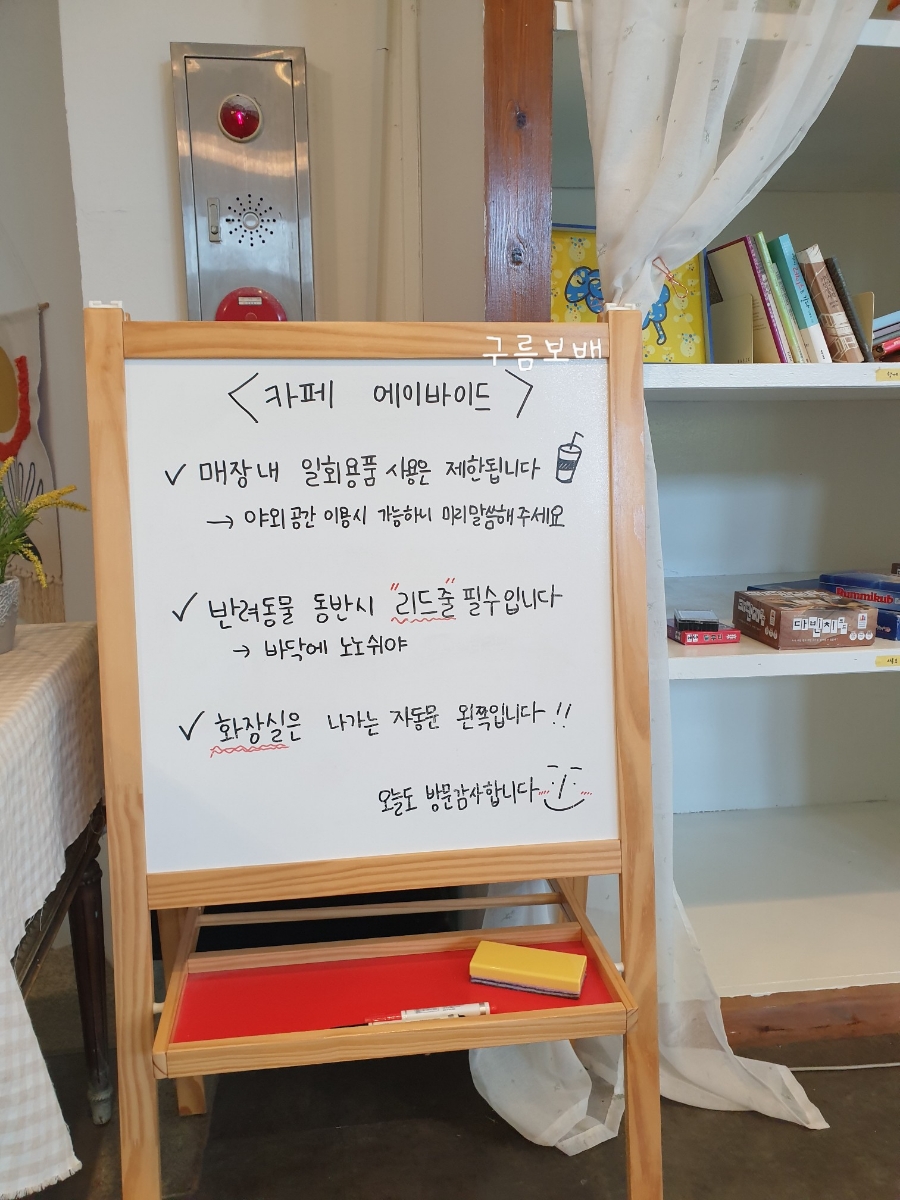 구름보배
<카페 에이바이드>
✓ 매장내 일회용품 사용은 제한됩니다
→ 야외공간 이용시 가능하니 미리말씀해주세요
✓ 반려동물 동반시 "리드줄" 필수입니다
→ 바닥에 노노쉬야
✓ 화장실은 나가는 자동문 왼쪽입니다!!
오늘도 방문감사합니다
Rummikub
다빈치코드